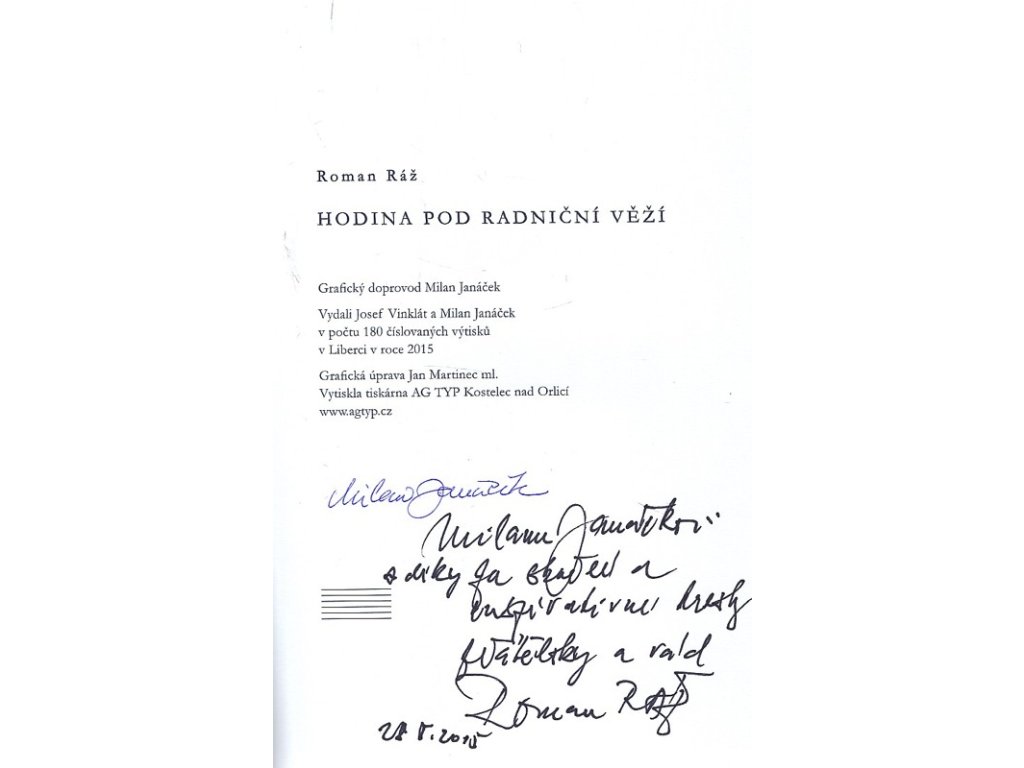 Roman Ráž
HODINA POD RADNIČNÍ VĚŽÍ
Grafický doprovod Milan Janáček
Vydali Josef Vinklát a Milan Janáček
v počtu 180 číslovaných výtisků
v Liberci v roce 2015
Grafická úprava Jan Martinec ml.
Vytiskla tiskárna AG TYP Kostelec nad Orlicí
www.agtyp.cz
Milan Janáček
Milanu Janáčkovi
s díky za a
inspirativní kresby
přátelsky a rád
Roman RÁŽ
2015